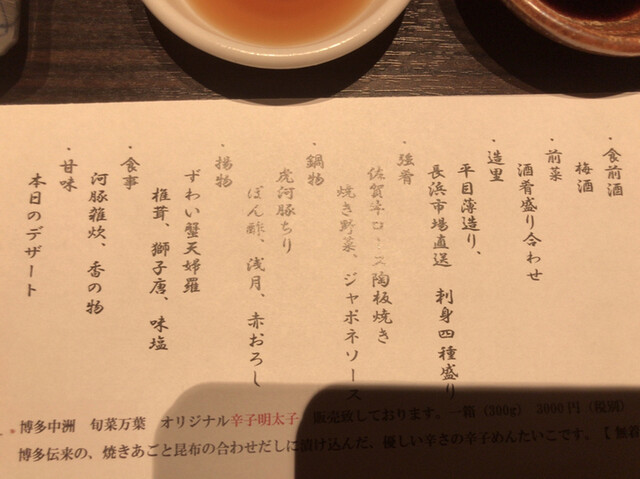 ・食前酒
梅酒
・前菜
酒肴盛り合わせ
・造里
平目薄造り、
長浜市場直送 刺身四種盛り
・強肴
佐賀牛ロース陶板焼き
焼き野菜、ジャポネソース
・鍋物
虎河豚ちり
ぽん酢、浅月、赤おろし
・揚物
ずわい蟹天婦羅
椎茸、獅子唐、味塩
・食事
河豚雑炊、香の物
・甘味
本日のデザート
博多中洲 旬菜万葉 オリジナル辛子明太子 販売致しております。一箱(300g) 3000円(税別)
博多伝来の、焼きあごと昆布の合わせだしに漬け込んだ、優しい辛さの辛子めんたいこです。【無着